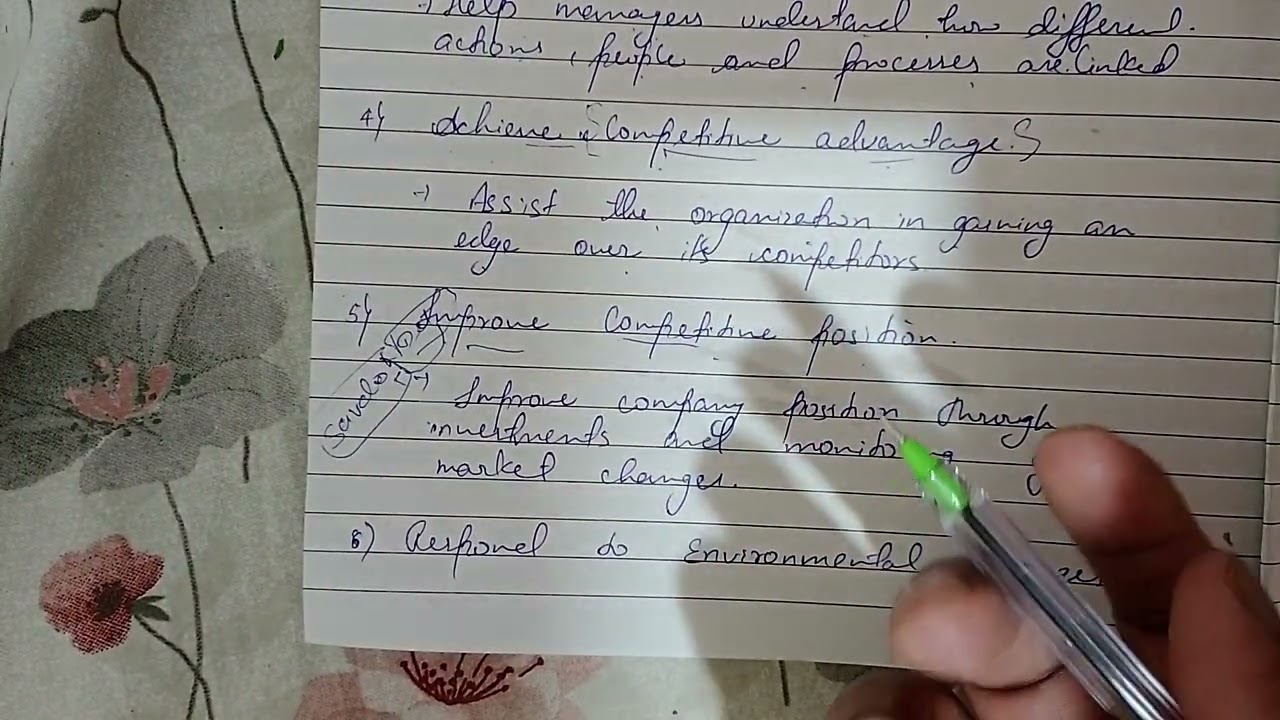 -) Help managers understand how different.
actions, people and processes are linked
4) Achieve Competitive advantage.
-) Assist the organization in gaining an
edge over its competitors
5) Improve Competitive position.
-) Improve company position through
investments and
market changes.
6) Respond to Environmental